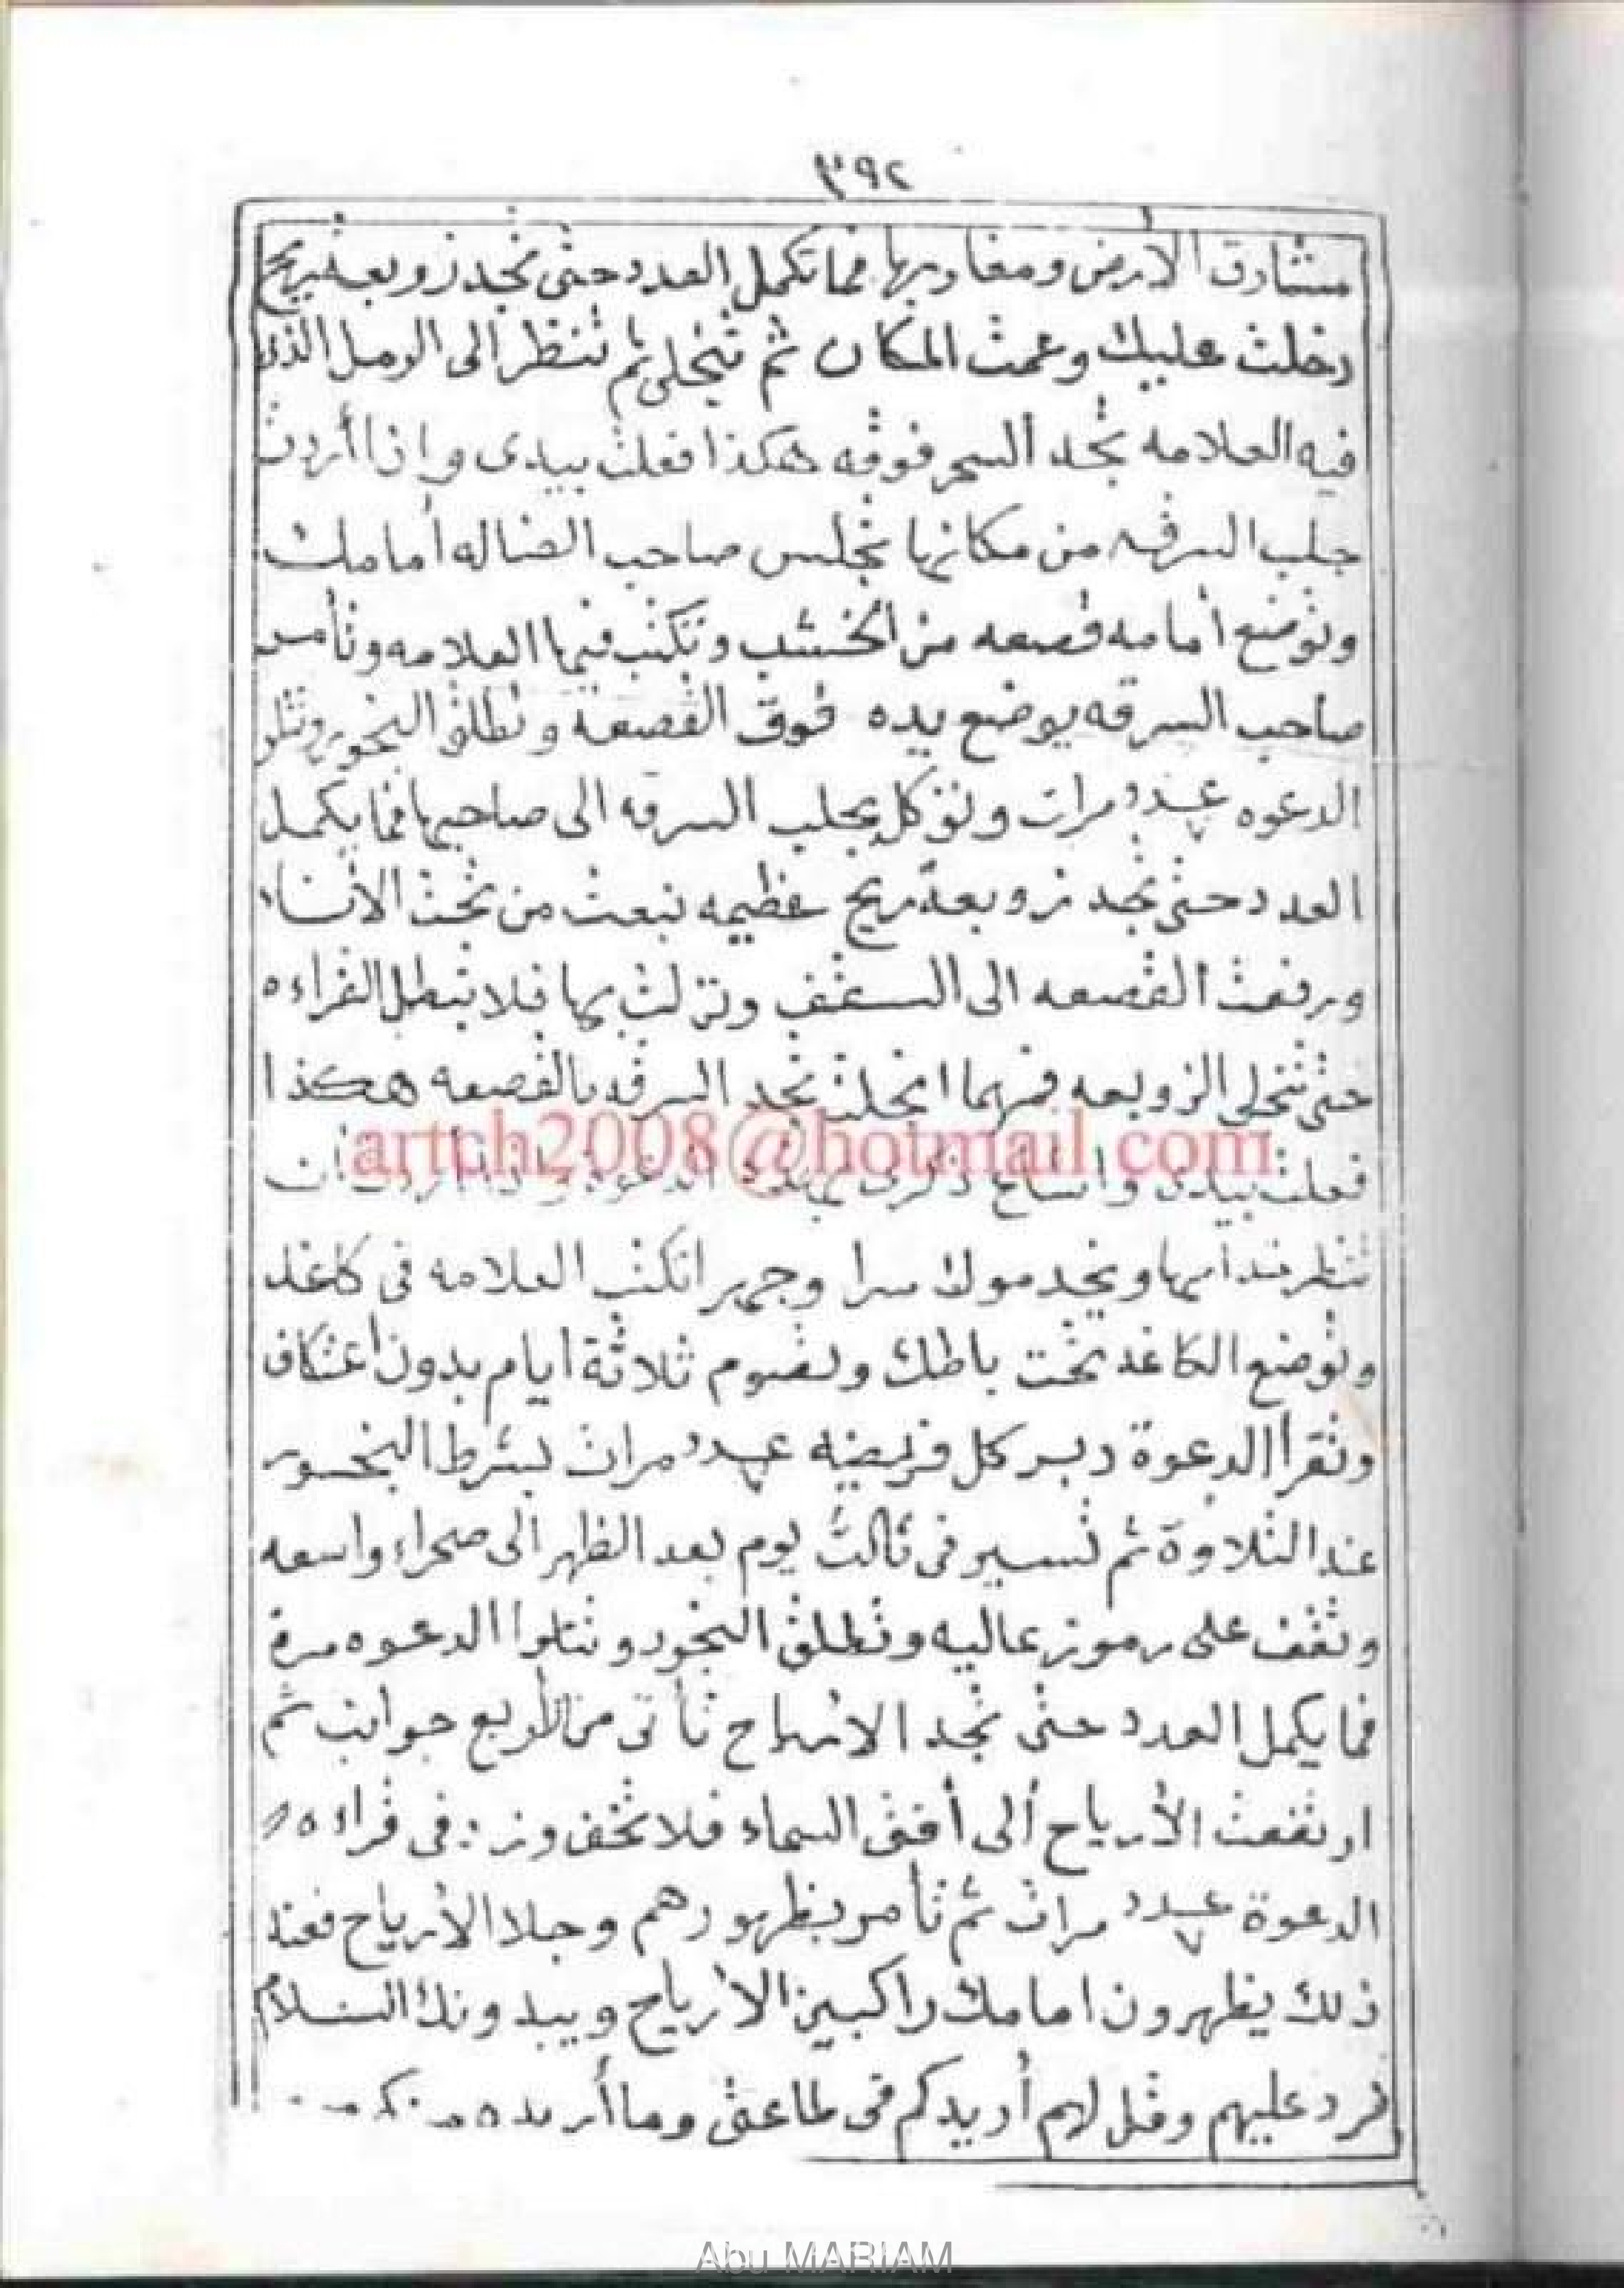 ٣٩٢
مشارق الارض ومغاربها فما تكمل العدد حتى تجد زوبعة ريح
دخلت عليك وعمت المكان ثم تنجلى ثم تنظر الى الرمل الذى
فيه العلامه تجد السحر فوقه هكذا فعلت بيدى واذا أردت
جلب السرقه من مكانها تجلس صاحب الضاله أمامك
وتوضع أمامه قصعه من الخشب وتكتب فيها العلامه وتأمر
صاحب السرقه يوضع يده فوق القصعة وتطلق البخور وتتلو
الدعوه عدد ٧ مرات وتوكل بجلب السرقه الى صاحبها فما يكمل
العدد حتى تجد زوبعة ريح عظيمه نبعت من تحت الأنساء
ورفعت القصعه الى السقف ونزلت بها فلا تبطل القراءه
حتى تنجلى الزوبعه فمهما انجلت تجد السرقه بالقصعه هكذا
artch2008@hotmail.com
فعلت بيدى وانشاع ذكرى بهذه الدعوة
تنظر خدامها ويخدموك سرا وجهرا تكتب العلامه فى كاغد
وتوضع الكاغد تحت باطك وتصوم ثلاثة ايام بدون اعتكاف
وتقرأ الدعوة دبر كل فريضه عدد مرات بشرط البخور
عند التلاوة ثم تسير فى ثالث يوم بعد الظهر الى صحراء واسعه
وتقف على رموز عاليه وتطلق البخور وتتلوا الدعوه مرة
فما يكمل العدد حتى تجد الارياح تأتى من الأربع جوانب ثم
ارتفعت الأرياح ألى أفق السماء فلا تخف وزد فى قراءه
الدعوة عدد ٧ مرات ثم تأمر بظهورهم وجلا الأرياح فعند
ذلك يظهرون امامك راكبين الأرياح ويبدونك السلام
فرد عليهم وقل لهم أريدكم فى طاعتى وما أريده منكم
Abu MARIAM